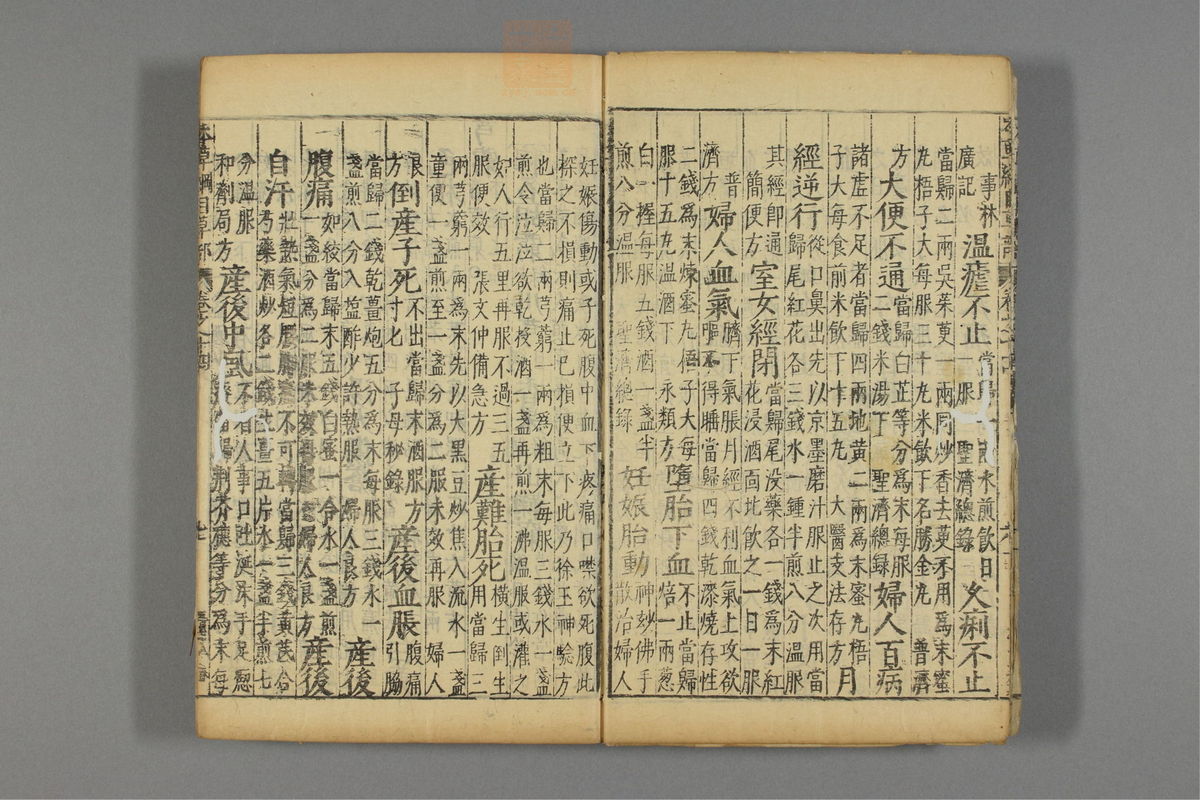 事林
廣記 温瘧不止 當歸一兩水煎飲日
一服 聖濟總錄 久痢不止
當歸二兩吳茱萸一兩同炒香去萸不用爲末蜜
丸梧子大每服三十丸米飲下名勝金丸 普濟
方 大便不通 當歸白芷等分爲末每服
二錢米湯下 聖濟總錄 婦人百病
諸虛不足者當歸四兩地黄二兩爲末蜜丸梧
子大每食前米飲下十五丸 大醫支法存方 月
經逆行 從口鼻出先以京墨磨汁服止之次用當
歸尾紅花各三錢水一鍾半煎八分温服
其經即通
簡便方 室女經閉 當歸尾没藥各一錢爲末紅
花浸酒面北飲之一日一服
普
濟方 婦人血氣 臍下氣脹月經不利血氣上攻欲
嘔不得睡當歸四錢乾漆燒存性
二錢爲末煉蜜丸梧子大每
服十五丸温酒下 永類方 墮胎下血 不止當歸
焙一兩葱
白一握每服五錢酒一盞半
煎八分温服 聖濟總錄 妊娠胎動 神妙佛手
散治婦人
妊娠傷動或子死腹中血下疼痛口噤欲死服此
探之不損則痛止已損便立下此乃徐王神驗方
也當歸二兩芎藭一兩爲粗末每服三錢水一盞
煎令泣泣欲乾投酒一盞再煎一沸温服或灌之
如人行五里再服不過三五
服便效 張文仲備急方 産難胎死 横生倒生
用當歸三
兩芎藭一兩爲末先以大黑豆炒焦入流水一盞
童便一盞煎至一盞分爲二服未效再服 婦人
良
方 倒産子死 不出當歸末酒服方
寸匕 子母秘錄 産後血脹 腹痛
引脇
當歸二錢乾薑炮五分爲末每服三錢水一
盞煎八分入塩酢少許熱服 婦人良方 産後
腹痛 如絞當歸末五錢白蜜一合水一盞煎
一盞分爲二服未效再服 婦人良方 産後
自汗 壯熱氣短腰脚痛不可轉當歸三錢黄芪合
芍藥酒炒各二錢生薑五片水一盞半煎七
分温服
和劑局方 産後中風 不省人事口吐涎沫手足瘛
瘲當歸荆芥穗等分爲末每